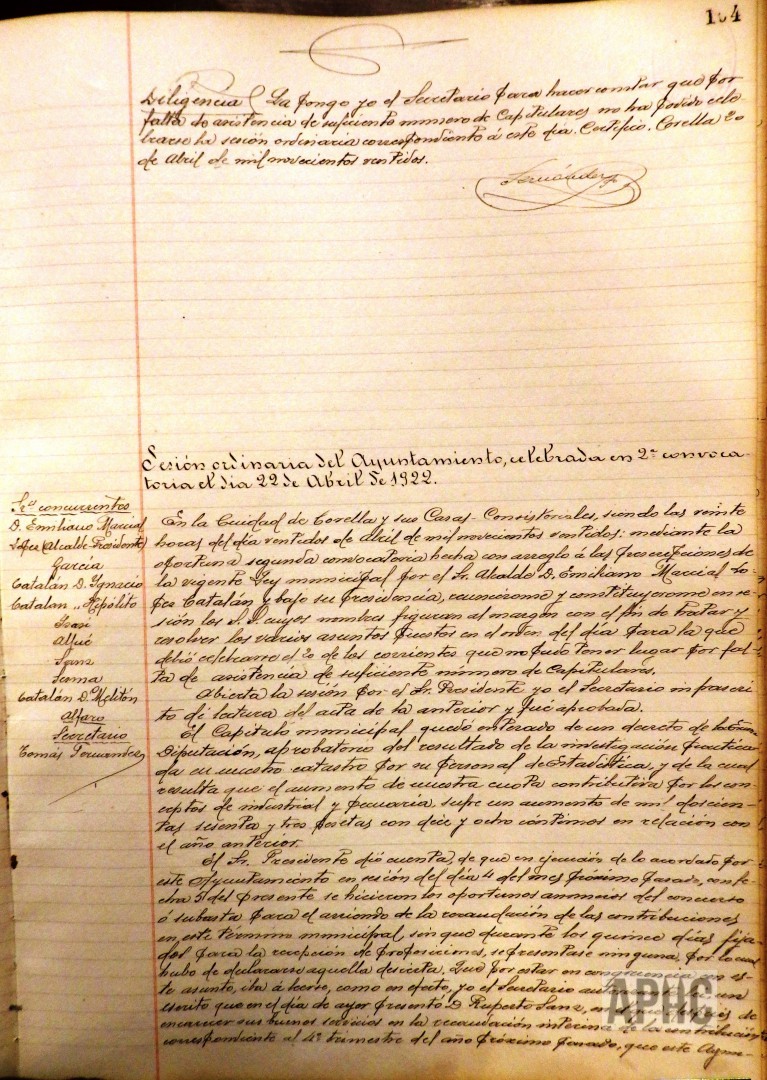 104
Diligencia La pongo yo el Secretario para hacer constar que por
falta de asistencia de suficiente número de Capitulares no ha podido cele-
brarse la sesión ordinaria correspondiente á este día. Certifico. Corella 20
de Abril de mil novecientos ventidos.
Fernández
Sesión ordinaria del Ayuntamiento, celebrada en 2ª convoca-
toria el día 22 de Abril de 1922.
Sres concurrentes
D. Emiliano Marcial
López (Alcalde Presidente)
García
Catalán D. Ignacio
Catalan " Hipólito
Alfué
Sanz
Catalán D. Melitón
Alfaro
Secretario
Tomás Fernández
En la Ciudad de Corella y sus Casas-Consistoriales, siendo las veinte
horas del día ventidos de abril de mil novecientos ventidos: mediante la
oportuna segunda convocatoria hecha con arreglo á las prescripciones de
la vigente Ley municipal por el Sr. Alcalde D. Emiliano Marcial Lo-
pez Catalán y bajo su presidencia, reuniéronse y constituyeronse en se-
sión los S.S. cuyos nombres figuran al margen con el fin de tratar y
resolver los varios asuntos puestos en el orden del día para la que
debió celebrarse el 20 de los corrientes que no pudo tener lugar por fal-
ta de asistencia de suficiente número de Capitulares.
Abierta la sesión por el Sr. Presidente yo el Secretario infrascri-
to dí lectura del acta de la anterior y fué aprobada.
El Capitulo municipal quedó enterado de un decreto de la Excma
Diputación, aprobatorio del resultado de la investigación practica-
da en nuestro catastro por su personal de Estadística, y de la cual
resulta que el aumento de nuestra cuota contributiva por los con-
ceptos de industrial y pecuaria, sufre un aumento de mil doscien-
tas sesenta y tres pesetas con diez y ocho céntimos en relación con
el año anterior.
El Sr. Presidente dió cuenta, de que en ejecución de lo acordado por
este Ayuntamiento en sesión del día 4 del mes próximo pasado, con fe-
cha del presente se hicieron los oportunos anuncios del concurso
ó subasta para el arriendo de la recaudación de las contribuciones
en este término municipal, sin que durante los quince días fija-
dos para la recepción de proposiciones, se presentase ninguna, por lo cual
hubo de declararse aquella desierta. Que por estar en congruencia con es-
te asunto, iba á leerse, como en efecto, yo el Secretario un
escrito que en el día de ayer presentó D. Ruperto Sanz, en después de
encarecer sus buenos servicios en la recaudación interina de la contribución
correspondiente al 4º trimestre del año próximo pasado, que este Ayun-
APHC